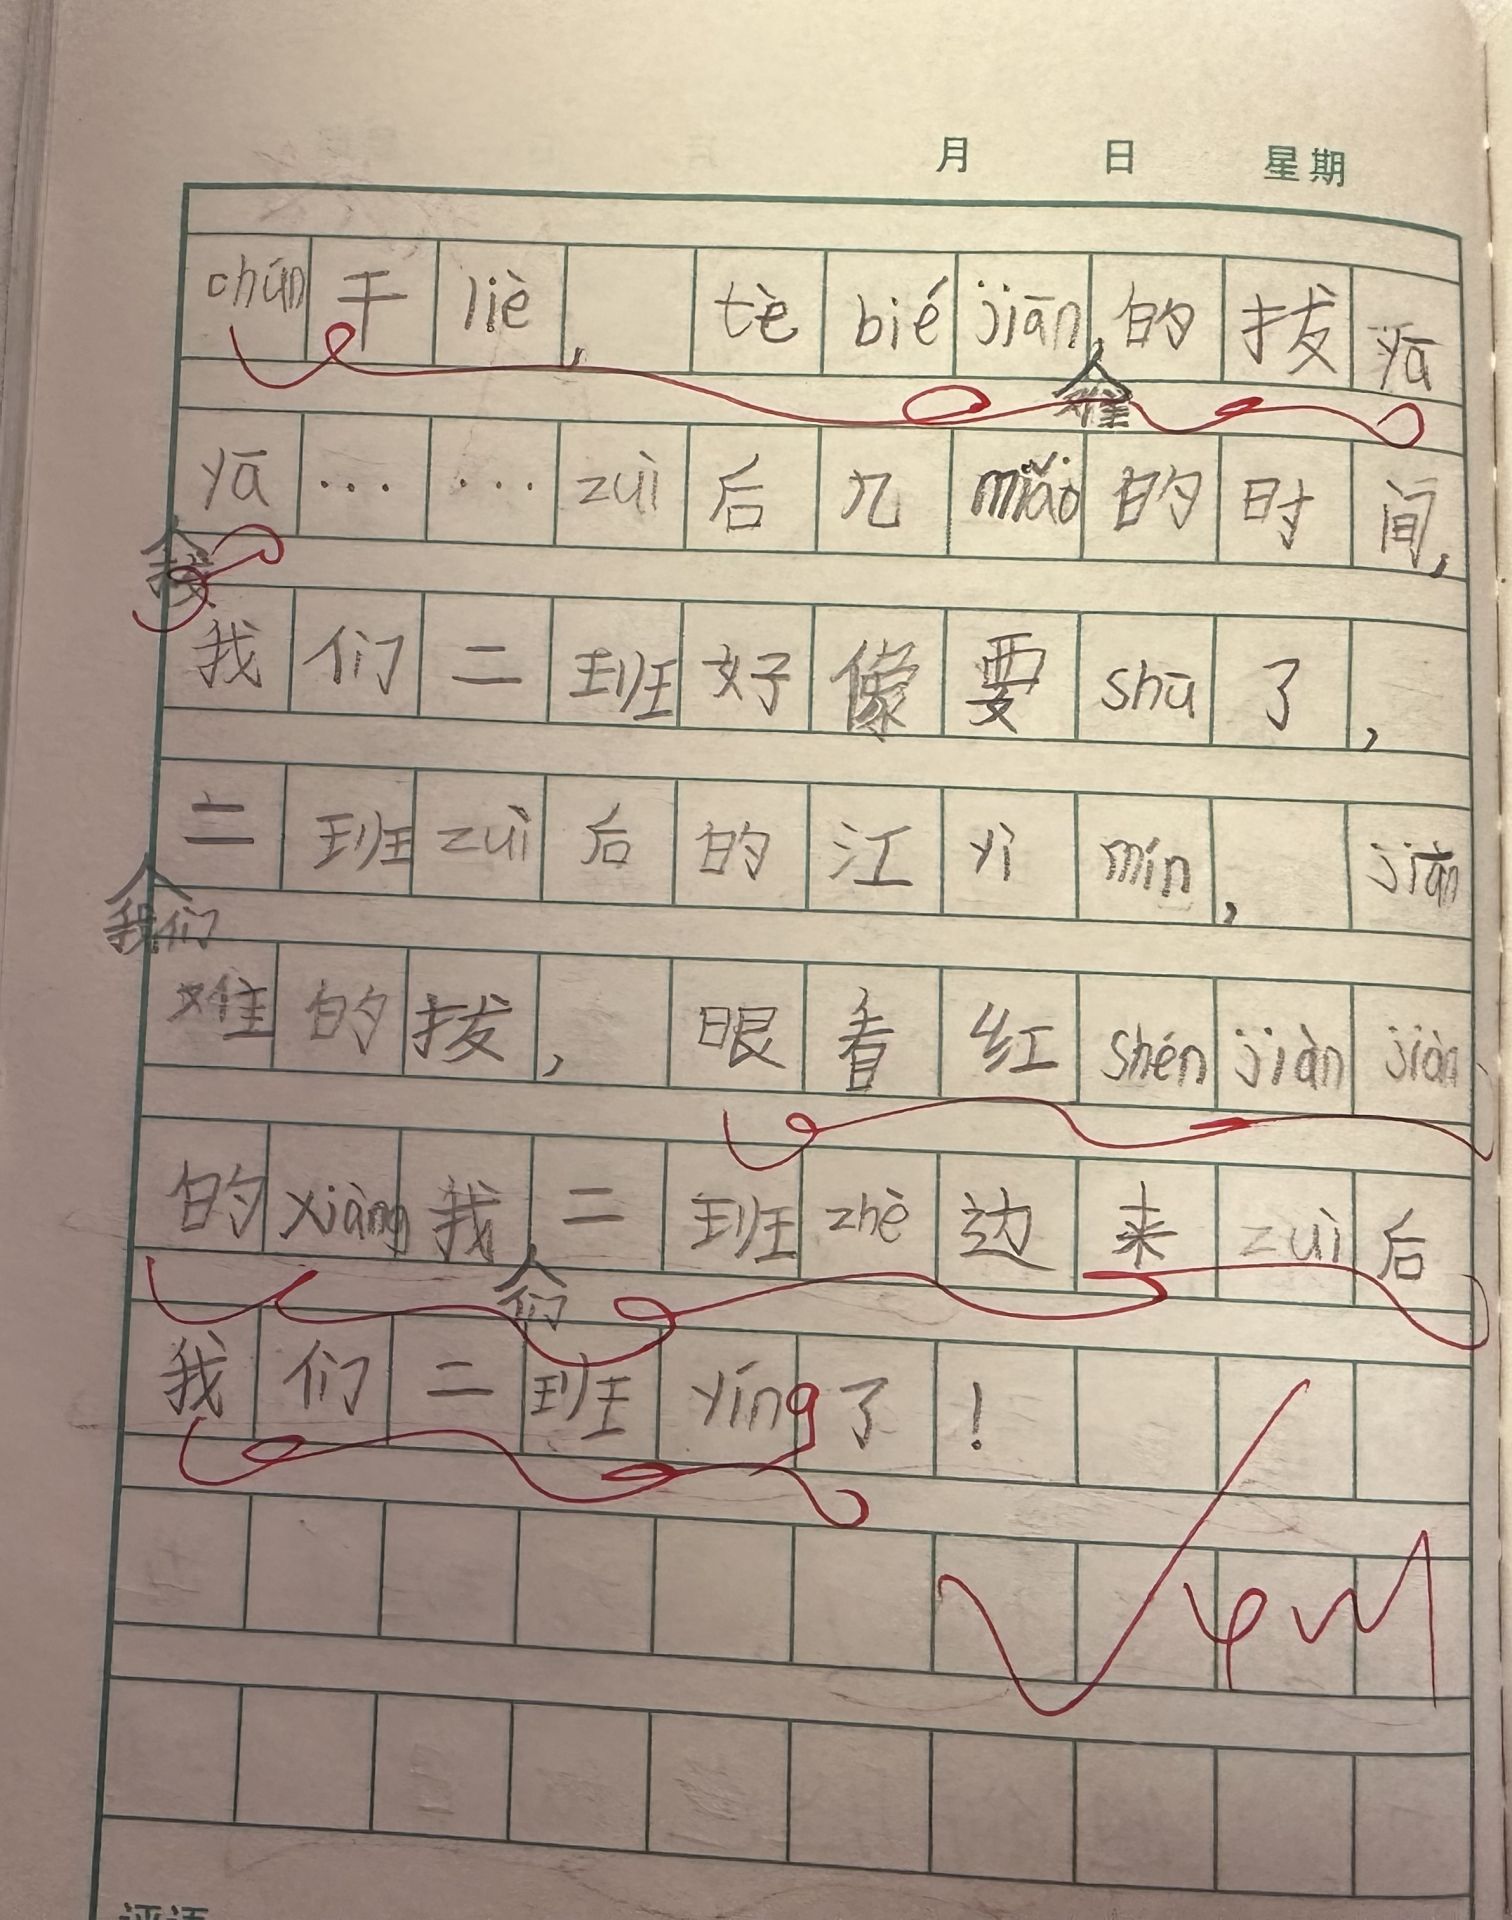 月 日 星期
chún干liè, tè bié jiān难的拔yā
yā……zuì后几miǎo的时间,
我我们二班好像要shū了,
二班zuì后的江yì mín, jiān
我们难的拔, 眼看红shén jiàn jiàn
的xiàng我们二班zhè边来zuì后
我们二班yíng了!
评语